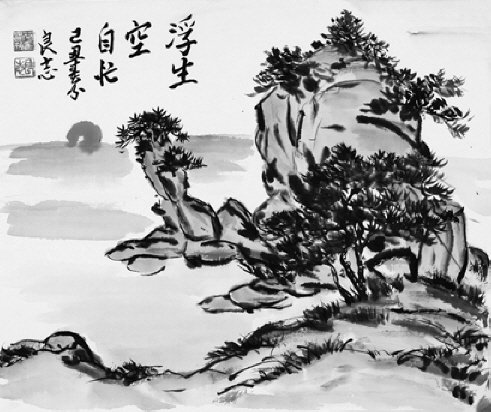 浮生
空
自忙
己丑春分
良志